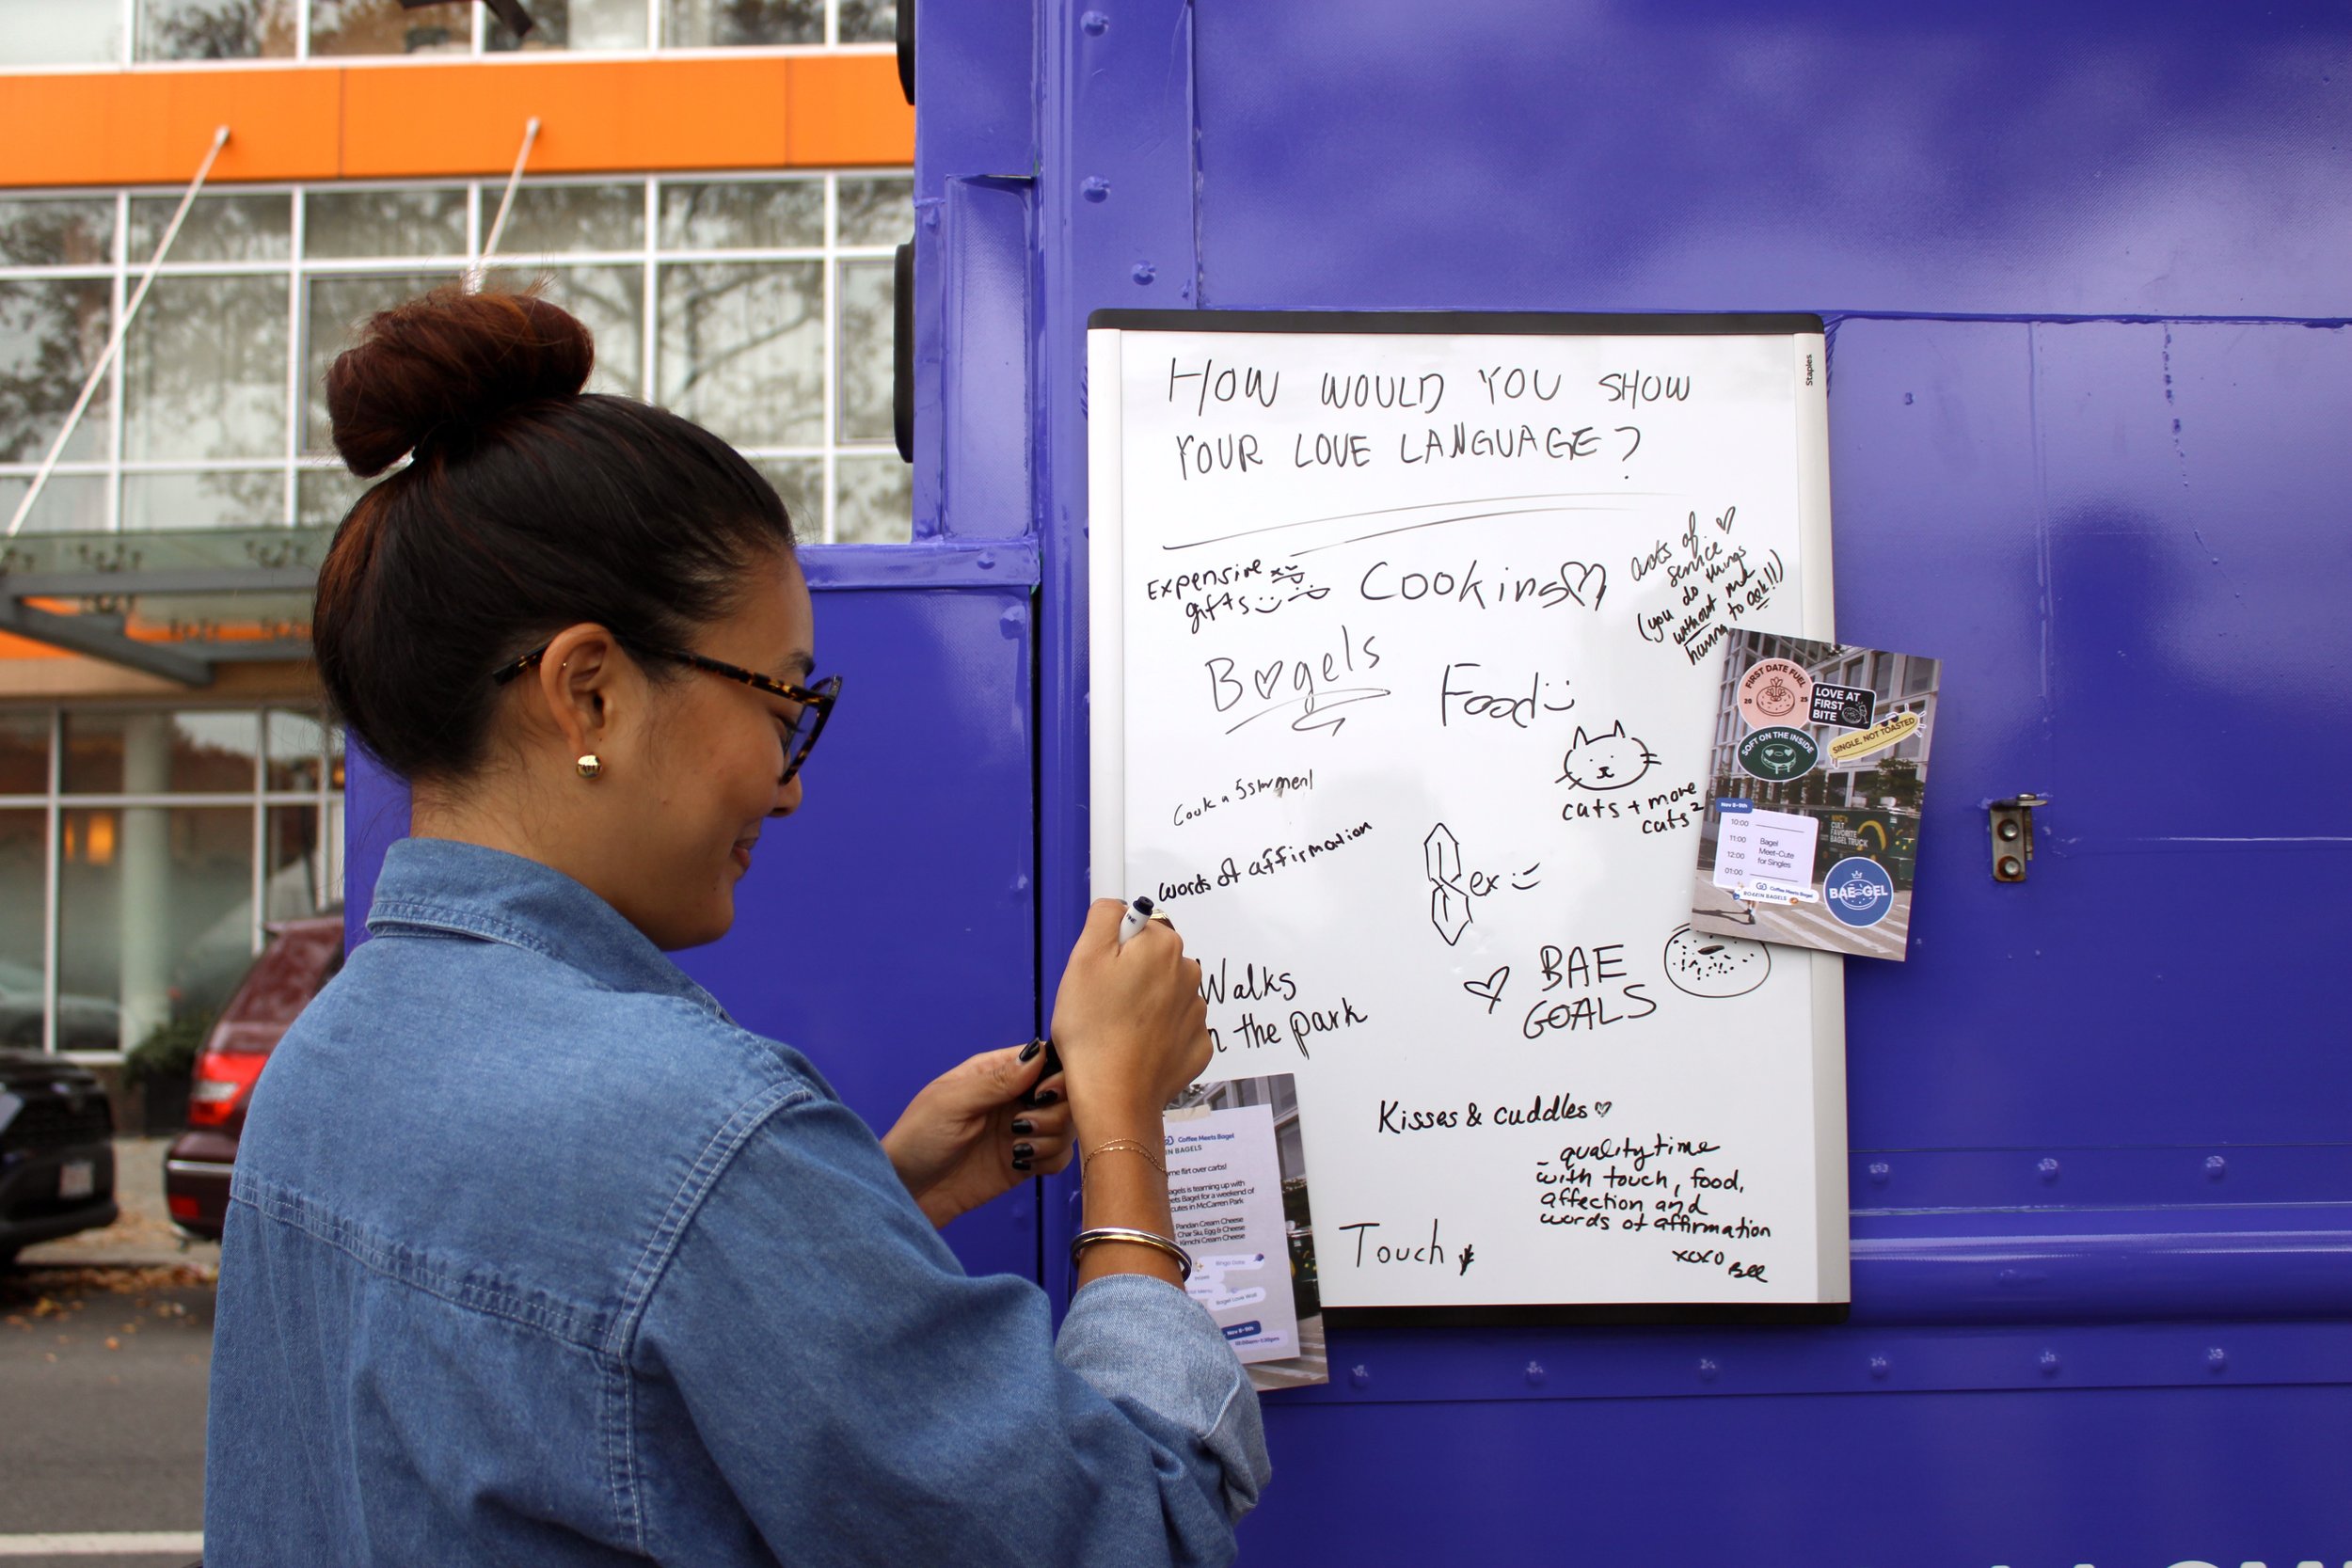 Staples
HOW WOULD YOU SHOW
YOUR LOVE LANGUAGE?
Expensive
gifts
Cooking
acts of
service
(you do things
without me
having to ask!!)
Bagels
Food
cats + more
cats²
Cook a 5 star meal
words of affirmation
ex
Walks
the park
BAE
GOALS
Kisses & cuddles
- quality time
with touch, food,
affection and
words of affirmation
xoxo Bee
Touch
FIRST DATE FUEL
20 25
LOVE AT
FIRST
BITE
SOFT ON THE INSIDE
SINGLE, NOT TOASTED
Nov 8-9th
10:00
11:00
12:00
01:00
Bagel
Meet-Cute
for Singles
NYC'S
CULT
FAVORITE
BAGEL TRUCK
Coffee Meets Bagel
BAE-GEL
Coffee Meets Bagel
IN BAGELS
me flirt over carbs!
agels is teaming up with
ets Bagel for a weekend of
cutes in McCarren Park
Pandan Cream Cheese
Char Siu, Egg & Cheese
Kimchi Cream Cheese
Bingo Date
Menu
Bagel Love Wall
Nov 8-9th